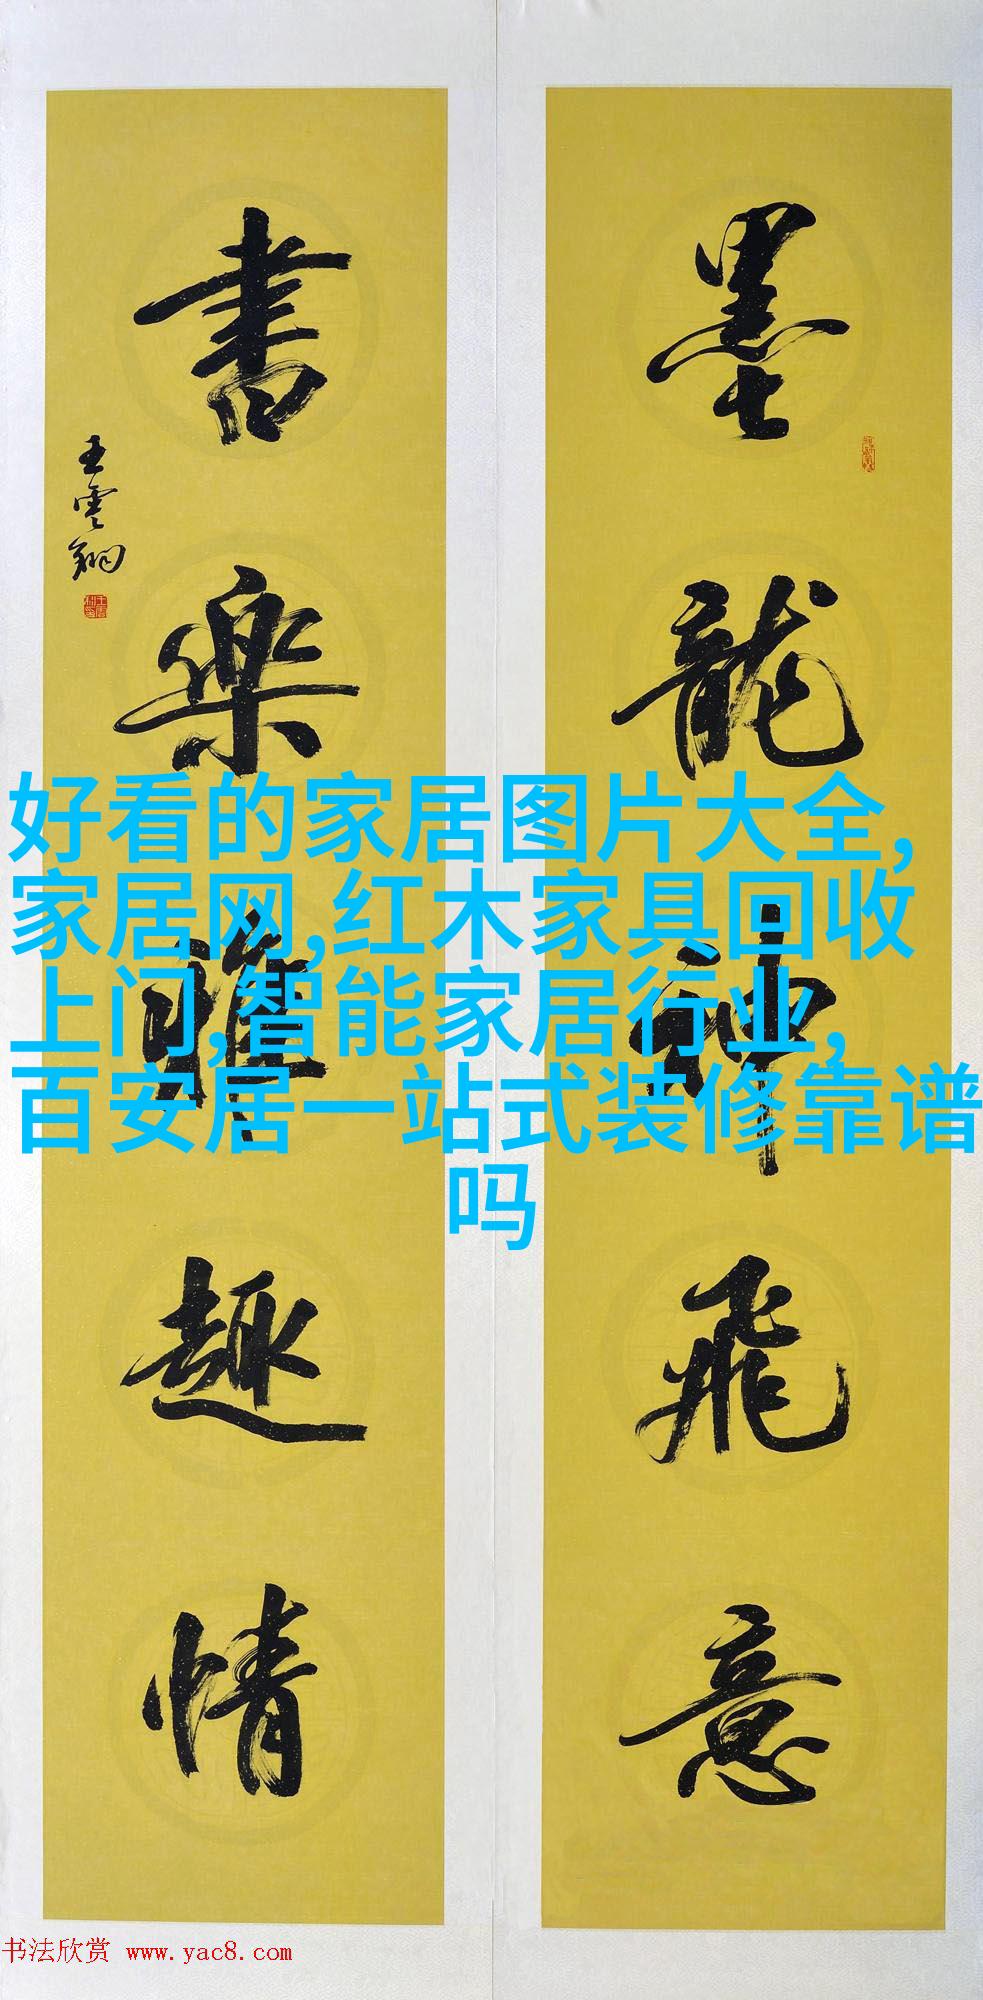 墨龍神飛意
書樂雅趣情
王雲翔
好看的家居图片大全,
家居网,红木家具回收
上门,智能家居行业,
百安居一站式装修靠谱
吗
书法欣赏 www.yac8.com